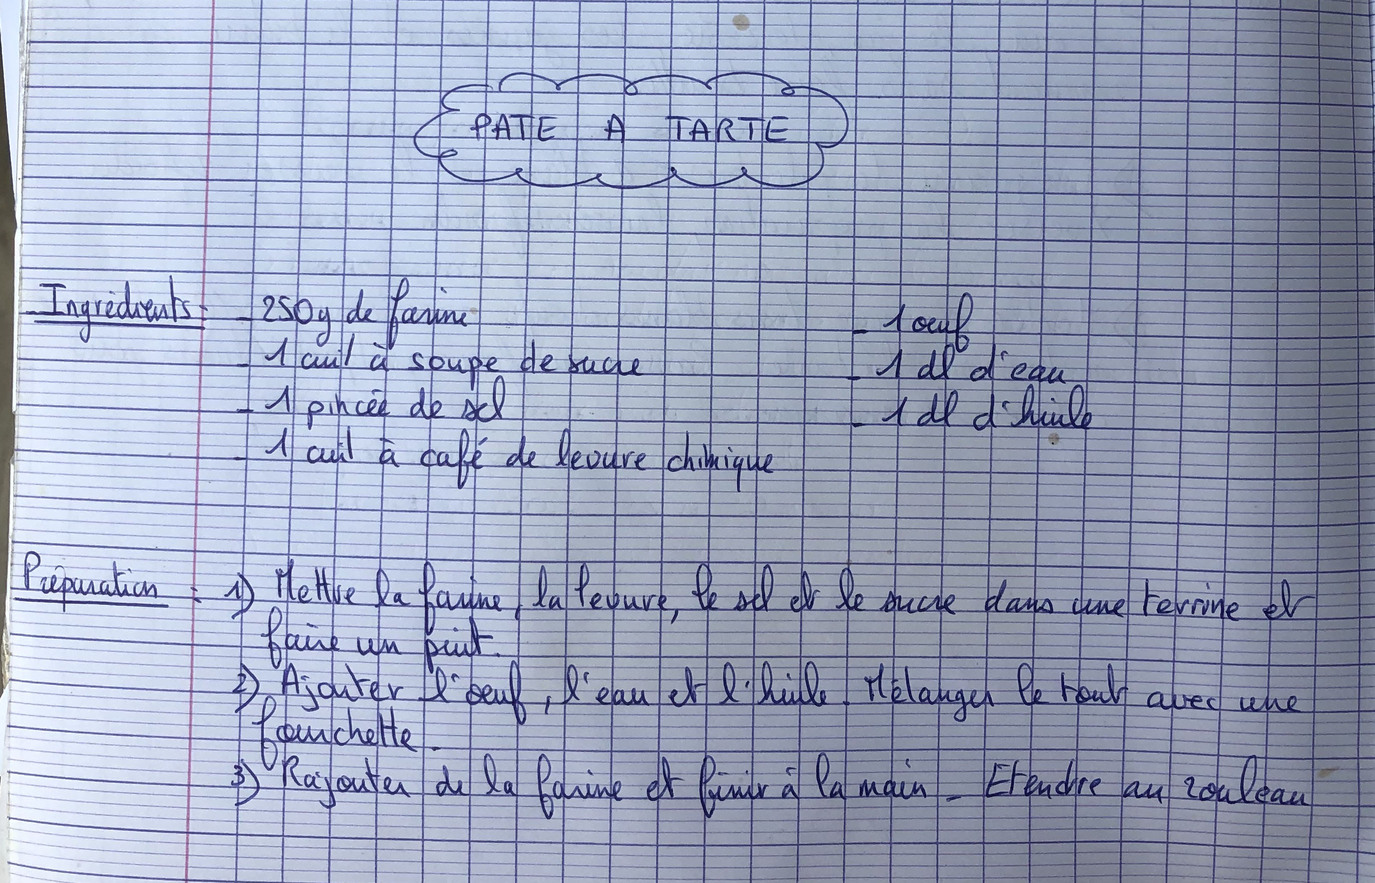 PATE A TARTE
Ingrédients : - 250g de farine - 1 oeuf
- 1 cuil à soupe de sucre - 1 dl d'eau
- 1 pincée de sel - 1 dl d'huile
- 1 cuil à café de levure chimique
Préparation : 1) Mettre la farine, la levure, le sel et le sucre dans une terrine et
faire un puit.
2) Ajouter l'oeuf, l'eau et l'huile. Mélanger le tout avec une
fourchette.
3) Rajouter de la farine et finir à la main - Etendre au rouleau